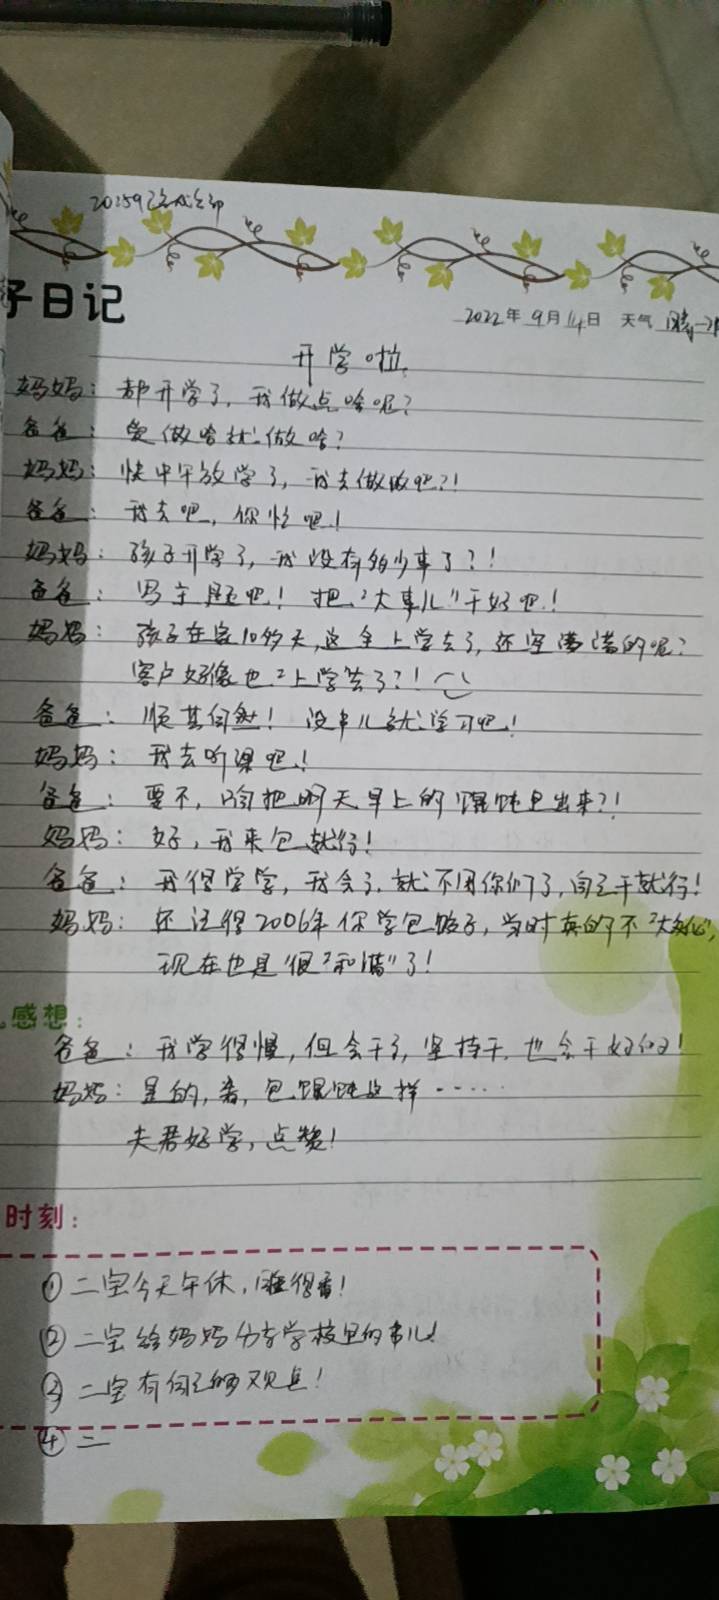 子日记
2022年9月14日 天气
开学啦
妈妈：都开学了，我做点啥呢？
爸爸：爱做啥就做啥？
妈妈：快中午放学了，我去做饭吧？！
爸爸：我去吧，你忙吧！
妈妈：孩子开学了，我没有多少事了？！
爸爸：写主题吧！把“大事儿”干好吧！
妈妈：孩子在家10多天，这会上学去了，还空落落的呢？
客户好像也“上学”去了？！
爸爸：顺其自然！没事儿就学习吧！
妈妈：我去听课吧！
爸爸：要不，咱把明天早上的馄饨包出来？！
妈妈：好，我来包就行！
爸爸：我得学学，我会了，就不用你们了，自己干就行！
妈妈：还记得2006年你学包饺子，当时真的不
现在也是“很”“和谐”了！
感想：
爸爸：我学得慢，但会干了，坚持干，也会干好的！
妈妈：是的，看，包馄饨这样……
夫君好学，点赞！
时刻：
①二宝今天午休，睡得香！
②二宝给妈妈分享学校里的事儿！
③二宝有自己的观点！
④二